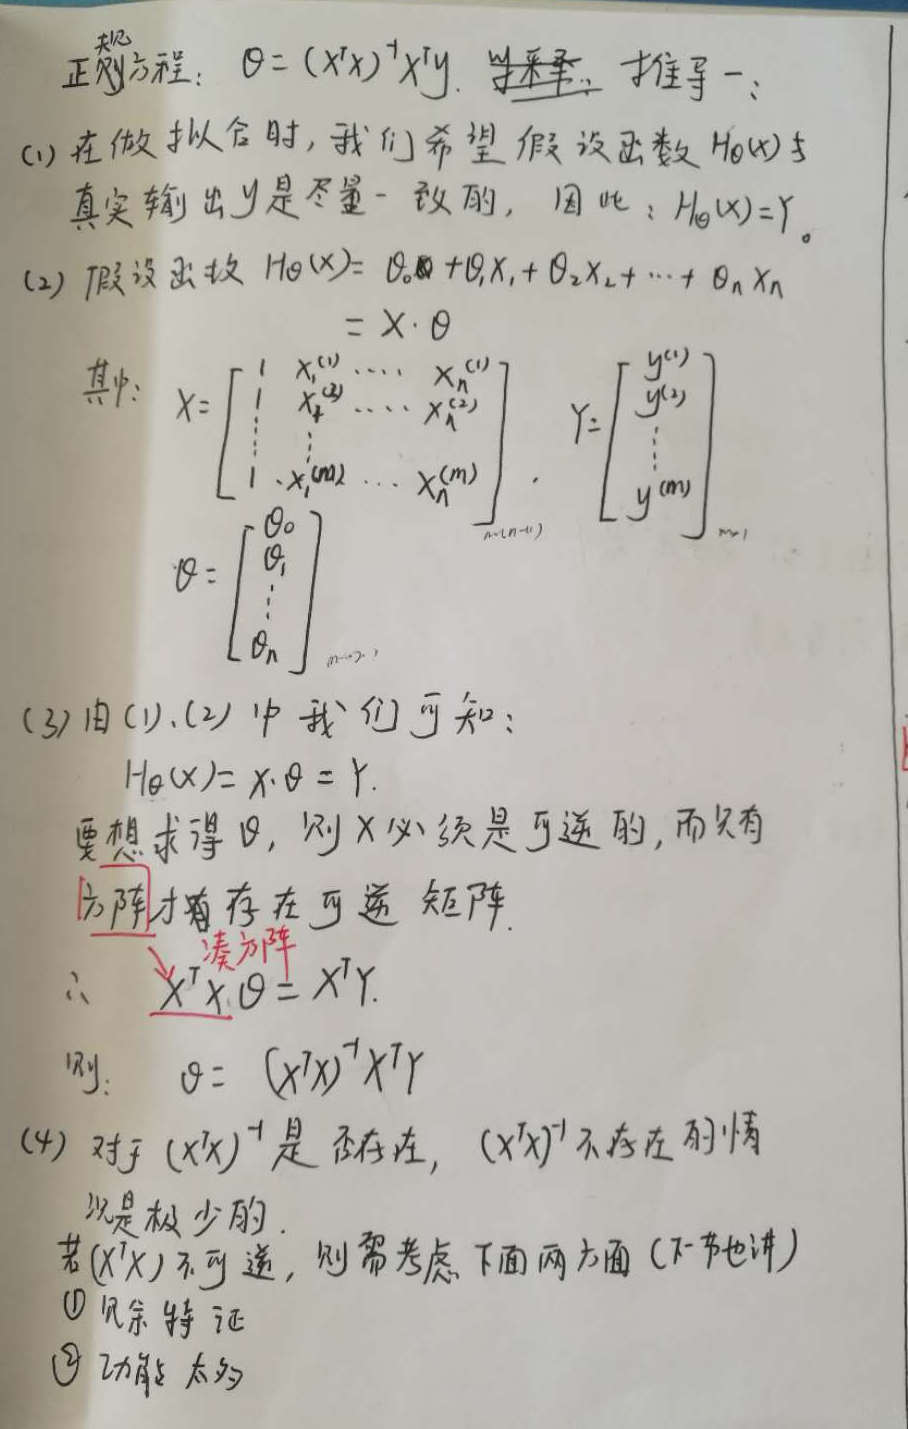 正规方程: θ=(XᵀX)⁻¹Xᵀy. 推导一:
(1) 在做拟合时,我们希望假设函数 Hθ(x)与
真实输出y是尽量一致的, 因此: Hθ(X)=Y。
(2) 假设函数 Hθ(x)= θ₀ + θ₁X₁ + θ₂X₂ + ⋯ + θₙXₙ
= X·θ
其中: X= [ 1 X₁⁽¹⁾ ···· Xₙ⁽¹⁾ Y= [ y⁽¹⁾
1 X₁⁽²⁾ ···· Xₙ⁽²⁾ y⁽²⁾
⋮ ⋮ ⋮
1 X₁⁽ᵐ⁾ ··· Xₙ⁽ᵐ⁾ ] y⁽ᵐ⁾ ]
θ= [ θ₀
θ₁
⋮
θₙ ]
(3) 由(1)、(2)中我们可知:
Hθ(X)= X·θ = Y.
要想求得θ, 则X必须是可逆的,而只有
方阵才有存在可逆矩阵.
凑方阵
∴ XᵀX·θ = XᵀY.
则: θ= (XᵀX)⁻¹XᵀY
(4) 对于 (XᵀX)⁻¹ 是否存在, (XᵀX)⁻¹不存在的情
况是极少的.
若(XᵀX)不可逆, 则需考虑下面两方面(下一节也讲)
① 冗余特证
② 功能太多